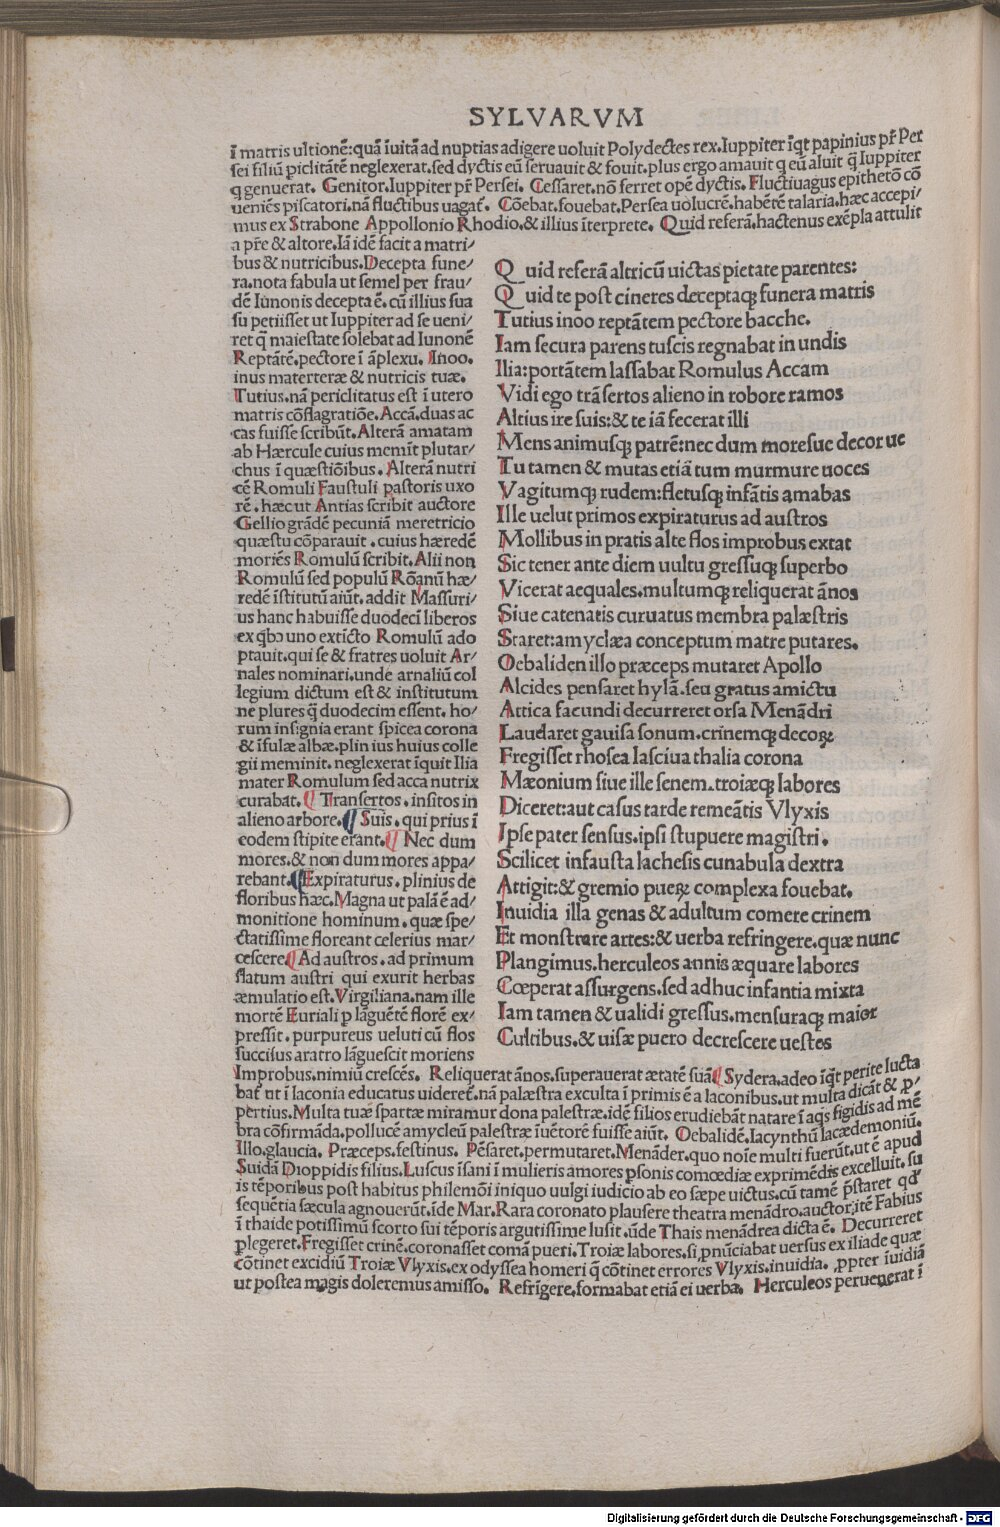 SYLVARVM
ī matris ultionē: quā īuitā ad nuptias adigere uoluit Polydectes rex. Iuppiter īq̄t papinius pr̄ Per
sei filiū piclitātē neglexerat. sed dyctis eū seruauit & fouit. plus ergo amauit q eū aluit q̄ Iuppiter
q genuerat. Genitor. Iuppiter pr̄ Persei. Cessaret. nō ferret opē dyctis. Fluctiuagus epithetō cō
ueniēs piscatori. nā fluctibus uagat̄. Cōebat. fouebat. Persea uolucrē. habētē talaria. hæc accepi/
mus ex Strabone Appollonio Rhodio. & illius īterprete. Quid referā. hactenus exēpla attulit
a pr̄e & altore. Iā idē facit a matri/
bus & nutricibus. Decepta fune/
ra. nota fabula ut semel per frau/
dē Iunonis decepta ē. cū illius sua
su petiisset ut Iuppiter ad se ueni/
ret q̄ maiestate solebat ad Iunonē
Reptātē. pectore ī āplexu. Inoo.
inus materteræ & nutricis tuæ.
Tutius. nā periclitatus est ī utero
matris cōflagratiōe. Accā. duas ac
cas fuisse scribūt. Alterā amatam
ab Hærcule cuius memīt plutar/
chus ī quæstiōibus. Alterā nutri
cē Romuli Faustuli pastoris uxo
rē. hæc ut Antias scribit auctore
Gellio grādē pecuniā meretricio
quæstu cōparauit. cuius hæredē
moriēs Romulū scribit. Alii non
Romulū sed populū Rōanū hæ/
redē īstitutū aiūt. addit Massuri/
us hanc habuisse duodecī liberos
ex qbo uno extīcto Romulū ado
ptauit. qui se & fratres uoluit Ar/
nales nominari. unde arnaliū col
legium dictum est & institutum
ne plures q̄ duodecim essent. ho/
rum insignia erant spicea corona
& īfulæ albæ. plinius huius colle
gii meminit. neglexerat īquit Ilia
mater Romulum sed acca nutrix
curabat. ¶ Transertos. insitos in
alieno arbore. ¶ Suis. qui prius ī
eodem stipite erant. ¶ Nec dum
mores. & non dum mores appa/
rebant. ¶ Expiraturus. plinius de
floribus hæc. Magna ut palā ē ad/
monitione hominum. quæ spe/
ctatissime floreant celerius mar/
cescere. ¶ Ad austros. ad primum
flatum austri qui exurit herbas
æmulatio est. Virgiliana. nam ille
mortē Euriali p lāguētē florē ex/
pressit. purpureus ueluti cū flos
succisus aratro lāguescit moriens
Quid referā altricū uictas pietate parentes:
Quid te post cineres deceptaq; funera matris
Tutius inoo reptātem pectore bacche.
Iam secura parens tuscis regnabat in undis
Ilia: portātem lassabat Romulus Accam
Vidi ego trāsertos alieno in robore ramos
Altius ire suis: & te iā fecerat illi
Mens animusq; patrē: nec dum moresue decorue
Tu tamen & mutas etiā tum murmure uoces
Vagitumq; rudem: fletusq; infātis amabas
Ille uelut primos expiraturus ad austros
Mollibus in pratis alte flos improbus extat
Sic tener ante diem uultu gressuq; superbo
Vicerat aequales. multumq; reliquerat ānos
Siue catenatis curuatus membra palæstris
Staret: amyclæa conceptum matre putares.
Oebaliden illo præceps mutaret Apollo
Alcides pensaret hylā. seu gratus amictu
Attica facundi decurreret orsa Menādri
Laudaret gauisa sonum. crinemq; decoꝝ
Fregisset rhosea lasciua thalia corona
Mæonium siue ille senem. troiæq; labores
Diceret: aut casus tarde remeātis Vlyxis
Ipse pater sensus. ipsi stupuere magistri.
Scilicet infausta lachesis cunabula dextra
Attigit: & gremio pueꝝ complexa fouebat.
Inuidia illa genas & adultum comere crinem
Et monstrare artes: & uerba refringere. quæ nunc
Plangimus. herculeos annis æquare labores
Cœperat assurgens. sed adhuc infantia mixta
Iam tamen & ualidi gressus. mensuraq; maior
Cultibus. & uisæ puero decrescere uestes
Improbus. nimiū crescēs. Reliquerat ānos. superauerat ætatē suā ¶ Sydera. adeo īq̄t perite lucta
bat̄ ut ī laconia educatus uideret̄. nā palæstra exculta ī primis ē a laconibus. ut multa dicāt & p/
pertius. Multa tuæ spartæ miramur dona palestræ. idē filios erudiebāt natare ī aqs figidis ad mē
bra cōfirmāda. pollucē amycleū palestræ īuētorē fuisse aiūt. Oebalidē. Iacynthū lacædemoniū.
Illo. glaucia. Præceps. festinus. Pēsaret. permutaret. Menāder. quo noīe multi fuerūt. ut ē apud
Suidā Dioppidis filius. Luscus īsani ī mulieris amores psonis comœdiæ exprimēdis excelluit. su
is tēporibus post habitus philemōi iniquo uulgi iudicio ab eo sæpe uictus. cū tamē p̄staret qd̄
sequētia sæcula agnouerūt. ide Mar. Rara coronato plausere theatra menādro. auctor. itē Fabius
ī thaide potissimū scorto sui tēporis argutissime lusit. ūde Thais menādrea dicta ē. Decurreret
plegeret. Fregisset crinē. coronasset comā pueri. Troiæ labores. si pnūciabat uersus ex iliade quæ
cōtinet excidiū Troiæ Vlyxis. ex odyssea homeri q̄ cōtinet errores Vlyxis. inuidia. ꝓpter īuidiā
ut postea magis doleremus amisso. Refrīgere. formabat etiā ei uerba. Herculeos peruenerat ī
Digitalisierung gefördert durch die Deutsche Forschungsgemeinschaft - DFG